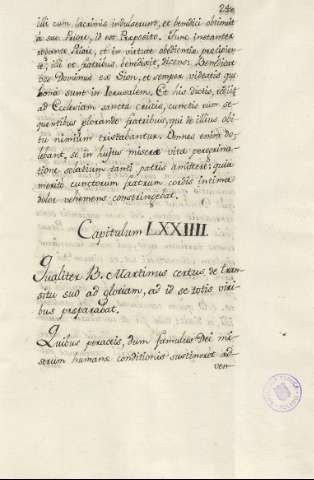 illi cum lacrimis indulserunt, et benedici obtinuit
à suo Priore, id est Preposito. Tunc instanter
rogante Priore, et in virtute obedientie precipien-
te, illi et fratribus benedixit, dicens: Benedicat
vos Dominus ex Sion, et semper videatis que
bona sunt in Ierusalem. Et his dictis, rediit
ad Ecclesiam sancte crucis, cunctis eum se-
quentibus plorando fratribus, qui de illius obi-
tu nimium tristabantur. Omnes enim do-
lebant, se, in hujus misere vite peregrina-
tione, solatium tanti patris amittere: quia
merito cunctorum fratrum cordis intima
dolor vehemens constringebat.
Capitulum LXXIIII
Qualiter B. Martinus certus de tran-
situ suo ad gloriam, ad id se totis viri-
bus preparabat.
Quibus peractis, dum famulus Dei mi-
serium humane conditionis sustineret ad-
ven-